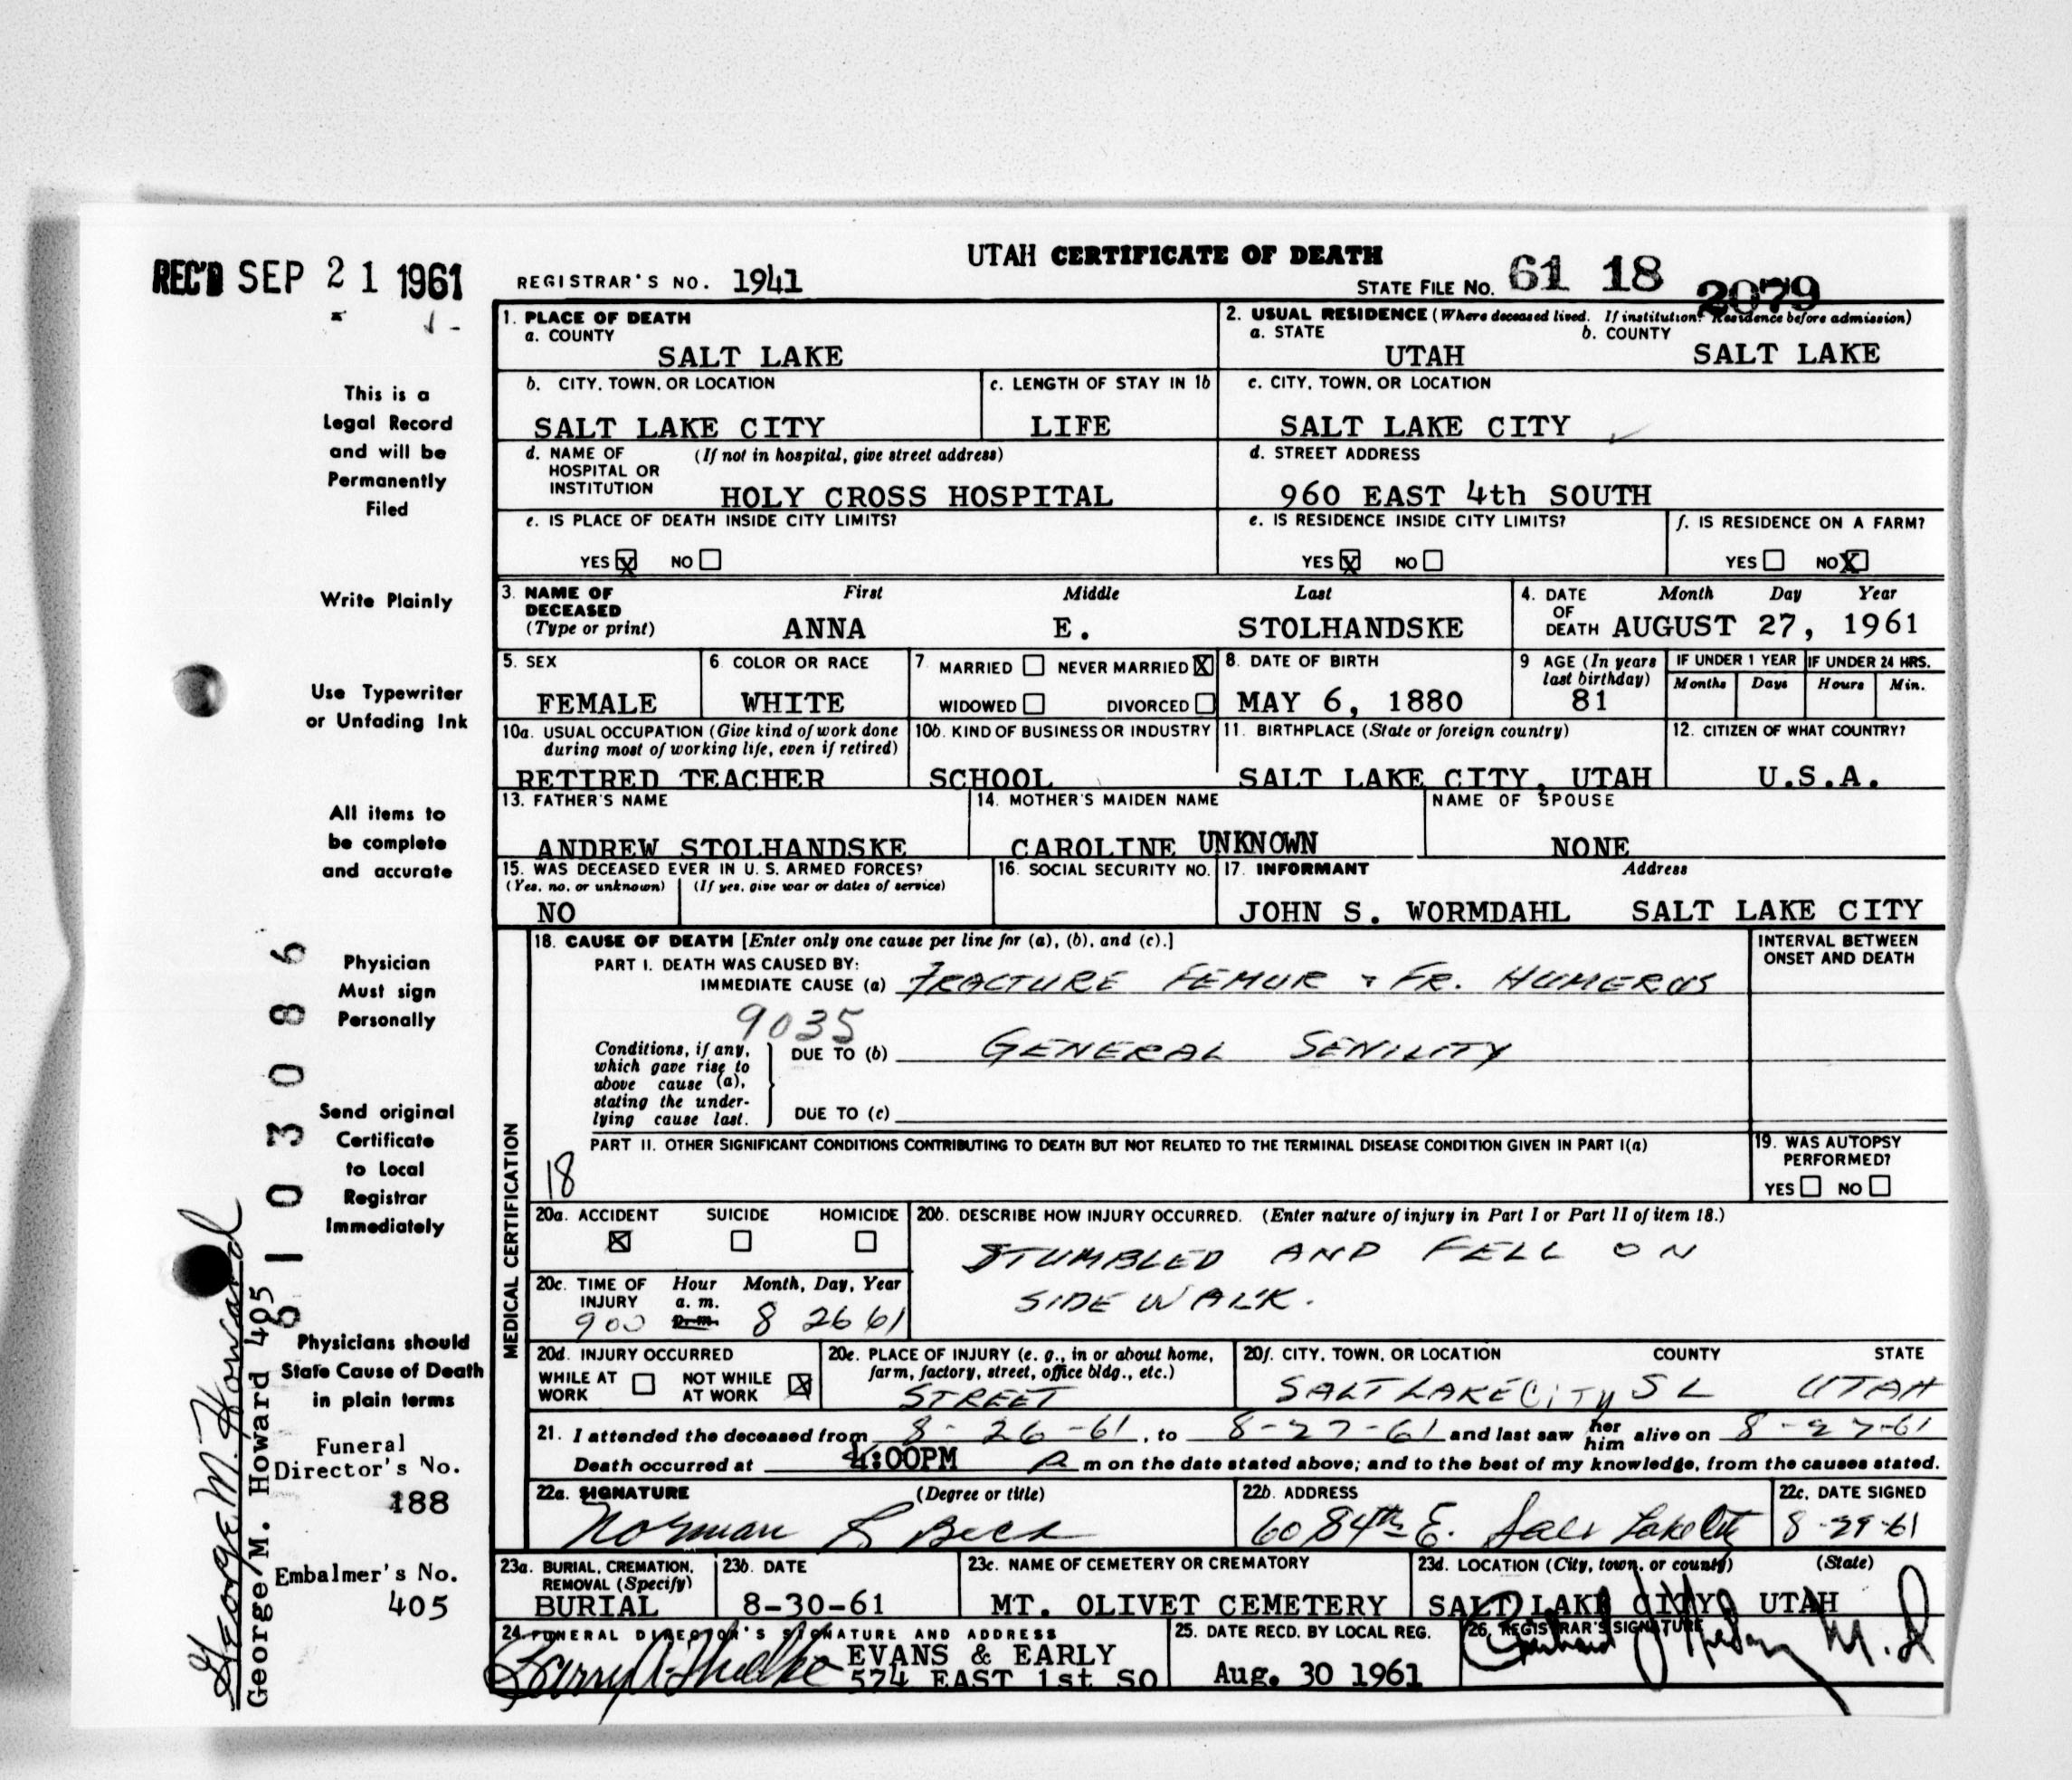 UTAH CERTIFICATE OF DEATH
REC'D SEP 21 1961
REGISTRAR'S NO. 1941
STATE FILE NO. 61 18 2079
This is a
Legal Record
and will be
Permanently
Filed
Write Plainly
Use Typewriter
or Unfading Ink
All items to
be complete
and accurate
Physician
Must sign
Personally
Send original
Certificate
to Local
Registrar
Immediately
Physicians should
State Cause of Death
in plain terms
Funeral
Director's No.
188
Embalmer's No.
405
61 03086
George M. Howard
George M. Howard 405
1. PLACE OF DEATH
a. COUNTY
SALT LAKE
2. USUAL RESIDENCE (Where deceased lived. If institution: Residence before admission)
a. STATE b. COUNTY
UTAH SALT LAKE
b. CITY, TOWN, OR LOCATION
SALT LAKE CITY
c. LENGTH OF STAY IN 1b
LIFE
c. CITY, TOWN, OR LOCATION
SALT LAKE CITY
d. NAME OF (If not in hospital, give street address)
HOSPITAL OR
INSTITUTION HOLY CROSS HOSPITAL
d. STREET ADDRESS
960 EAST 4th SOUTH
e. IS PLACE OF DEATH INSIDE CITY LIMITS?
YES X NO
e. IS RESIDENCE INSIDE CITY LIMITS?
YES X NO
f. IS RESIDENCE ON A FARM?
YES NO X
3. NAME OF First Middle Last
DECEASED
(Type or print) ANNA E. STOLHANDSKE
4. DATE Month Day Year
OF
DEATH AUGUST 27, 1961
5. SEX
FEMALE
6. COLOR OR RACE
WHITE
7. MARRIED NEVER MARRIED X
WIDOWED DIVORCED
8. DATE OF BIRTH
MAY 6, 1880
9. AGE (In years
last birthday)
81
IF UNDER 1 YEAR IF UNDER 24 HRS.
Months Days Hours Min.
10a. USUAL OCCUPATION (Give kind of work done
during most of working life, even if retired)
RETIRED TEACHER
10b. KIND OF BUSINESS OR INDUSTRY
SCHOOL
11. BIRTHPLACE (State or foreign country)
SALT LAKE CITY, UTAH
12. CITIZEN OF WHAT COUNTRY?
U.S.A.
13. FATHER'S NAME
ANDREW STOLHANDSKE
14. MOTHER'S MAIDEN NAME
CAROLINE UNKNOWN
NAME OF SPOUSE
NONE
15. WAS DECEASED EVER IN U. S. ARMED FORCES?
(Yes, no, or unknown) (If yes, give war or dates of service)
NO
16. SOCIAL SECURITY NO.
17. INFORMANT Address
JOHN S. WORMDAHL SALT LAKE CITY
MEDICAL CERTIFICATION
18. CAUSE OF DEATH [Enter only one cause per line for (a), (b), and (c).]
INTERVAL BETWEEN
ONSET AND DEATH
PART I. DEATH WAS CAUSED BY:
IMMEDIATE CAUSE (a) FRACTURE FEMUR + FR. HUMERUS
9035
Conditions, if any,
which gave rise to
above cause (a),
stating the under-
lying cause last.
DUE TO (b) GENERAL SENILITY
DUE TO (c)
PART II. OTHER SIGNIFICANT CONDITIONS CONTRIBUTING TO DEATH BUT NOT RELATED TO THE TERMINAL DISEASE CONDITION GIVEN IN PART I(a)
18
19. WAS AUTOPSY
PERFORMED?
YES NO
20a. ACCIDENT SUICIDE HOMICIDE
X
20b. DESCRIBE HOW INJURY OCCURRED. (Enter nature of injury in Part I or Part II of item 18.)
STUMBLED AND FELL ON
SIDE WALK.
20c. TIME OF Hour Month, Day, Year
INJURY a. m.
900 p. m. 8 26 61
20d. INJURY OCCURRED
WHILE AT WORK NOT WHILE AT WORK X
20e. PLACE OF INJURY (e. g., in or about home,
farm, factory, street, office bldg., etc.)
STREET
20f. CITY, TOWN, OR LOCATION COUNTY STATE
SALT LAKE CITY S L UTAH
21. I attended the deceased from 8-26-61, to 8-27-61 and last saw her him alive on 8-27-61
Death occurred at 4:00PM P m on the date stated above; and to the best of my knowledge, from the causes stated.
22a. SIGNATURE (Degree or title)
Norman S Beck
22b. ADDRESS
60 S 4th E. Salt Lake City
22c. DATE SIGNED
8-29-61
23a. BURIAL, CREMATION,
REMOVAL (Specify)
BURIAL
23b. DATE
8-30-61
23c. NAME OF CEMETERY OR CREMATORY
MT. OLIVET CEMETERY
23d. LOCATION (City, town, or county) (State)
SALT LAKE CITY UTAH
24. FUNERAL DIRECTOR'S SIGNATURE AND ADDRESS
EVANS & EARLY
574 EAST 1st SO
25. DATE RECD. BY LOCAL REG.
Aug. 30 1961
26. REGISTRAR'S SIGNATURE
M.D